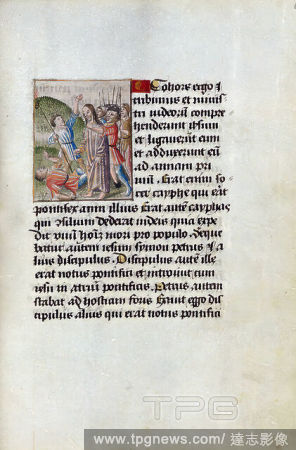 Cohors ergo &
tribunus et minist
ri iudeorum compre
henderunt ihesum
et ligauerunt eum
et adduxerunt eu
ad annam pri
mu. Erat enim so
cer cayphe qui erat
pontifex anni illius Erat autem cayphas
qui consilium dederat iudeis quia expe
dit unu homine mori pro populo. Seque
batur autem iesum symon petrus et a
lius discipulus. Discipulus aute ille
erat notus pontifici et introiuit cum
iesu in atrium pontificis. Petrus autem
stabat ad hostium foris Exiuit ergo dis
cipulus alius qui erat notus pontifici
TPG
www.tpgnews.com / 達志影像